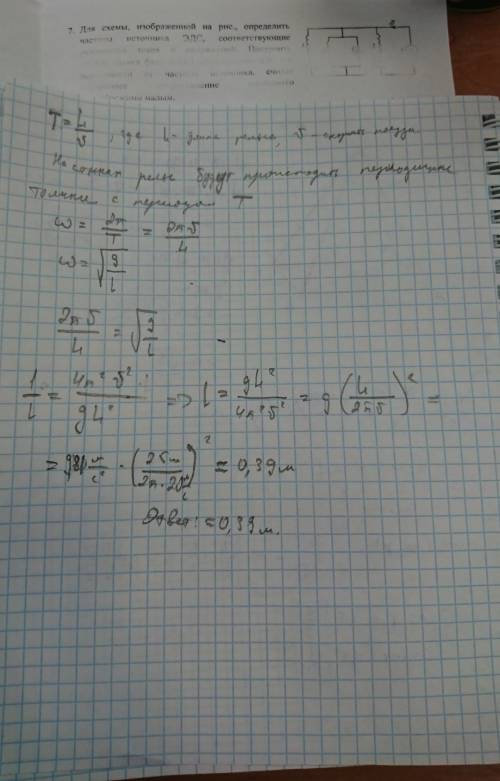 7. Для схемы, изображенной на рис., определить
частоты источника ЭДС, соответствующие
от частоты источника, считая
малым.
T = L/υ, где L - длина рельса, υ - скорость поезда.
На стыках рельс будут происходить периодические
толчки с периодом T
ω = 2π/T = 2πυ/L
ω = √(g/l)
2πυ/L = √(g/l)
1/l = 4π²υ²/gL² => l = gL²/4π²υ² = g(L/2πυ)² =
= 9,81 м/с² · (25м/2π·20м/с)² ≈ 0,39 м
Ответ: ≈ 0,39 м.